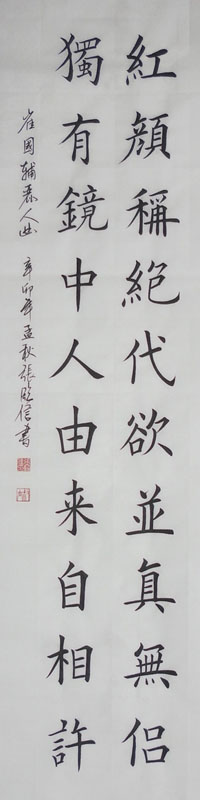 紅顏稱絕代欲並真無侶
獨有鏡中人由来自相許
崔國輔麗人曲 辛卯年孟秋張 信書